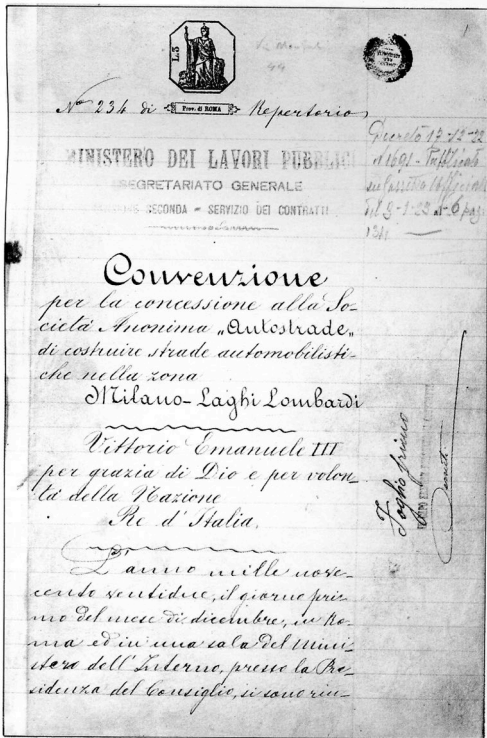 L.3
Prov. di ROMA
Nº 234 di Repertorio
MINISTERO DEI LAVORI PUBBLICI
SEGRETARIATO GENERALE
SECONDA - SERVIZIO DEI CONTRATTI
Decreto 17-12-22
n 1691 - Pubblicato
del 9-1-23 n 6 pag
Convenzione
per la concessione alla So-
cietà Anonima „Autostrade„
di costruire strade automobilisti-
che nella zona
Milano-Laghi Lombardi
Vittorio Emanuele III
per grazia di Dio e per volon-
tà della Nazione
Re d'Italia.
L'anno mille nove-
cento ventidue, il giorno pri-
mo del mese di dicembre, in Ro-
ma ed in una sala del Mini-
stero dell'Interno, presso la Pre-
sidenza del Consiglio, si sono riu-
Foglio primo